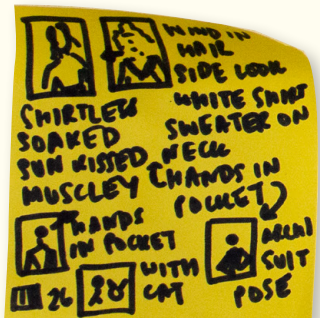 WIND IN
HAIR
SIDE LOOK
WHITE SHIRT
SWEATER ON
NECK
(HANDS IN
POCKET)
SHIRTLESS
SOAKED
SUN KISSED
MUSCLEY
HANDS
IN POCKET
WITH
CAT
SUIT
POSE
26